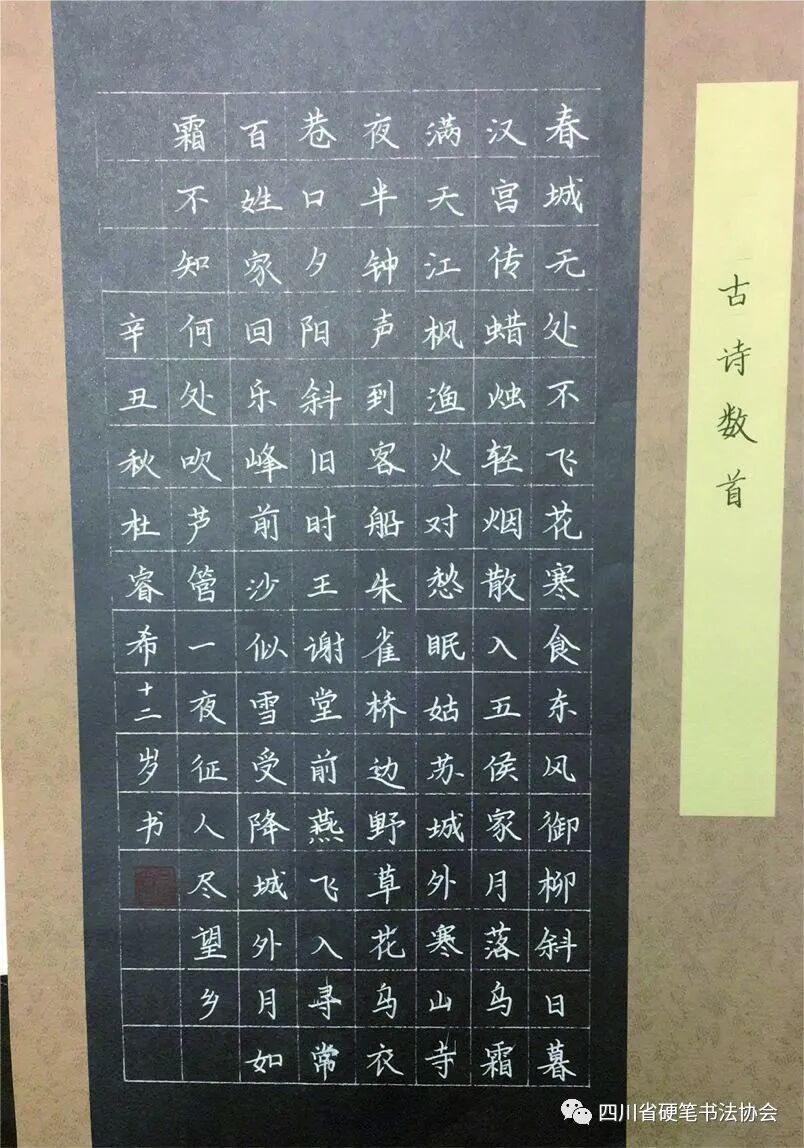 古诗数首
春城无处不飞花寒食东风御柳斜日暮
汉宫传蜡烛轻烟散入五侯家月落乌霜
满天江枫渔火对愁眠姑苏城外寒山寺
夜半钟声到客船朱雀桥边野草花乌衣
巷口夕阳斜旧时王谢堂前燕飞入寻常
百姓家回乐峰前沙似雪受降城外月如
霜不知何处吹芦管一夜征人尽望乡
辛丑秋杜睿希十二岁书
四川省硬笔书法协会